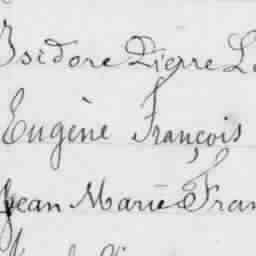 Isidore Pierre
Eugène François
Jean Marie Fran